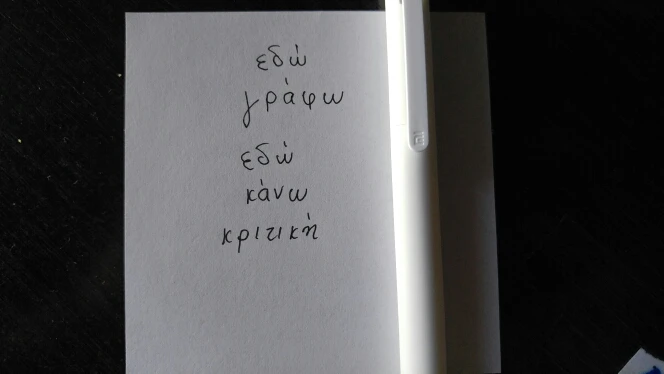 εδώ
γράφω
εδώ
κάνω
κριτική